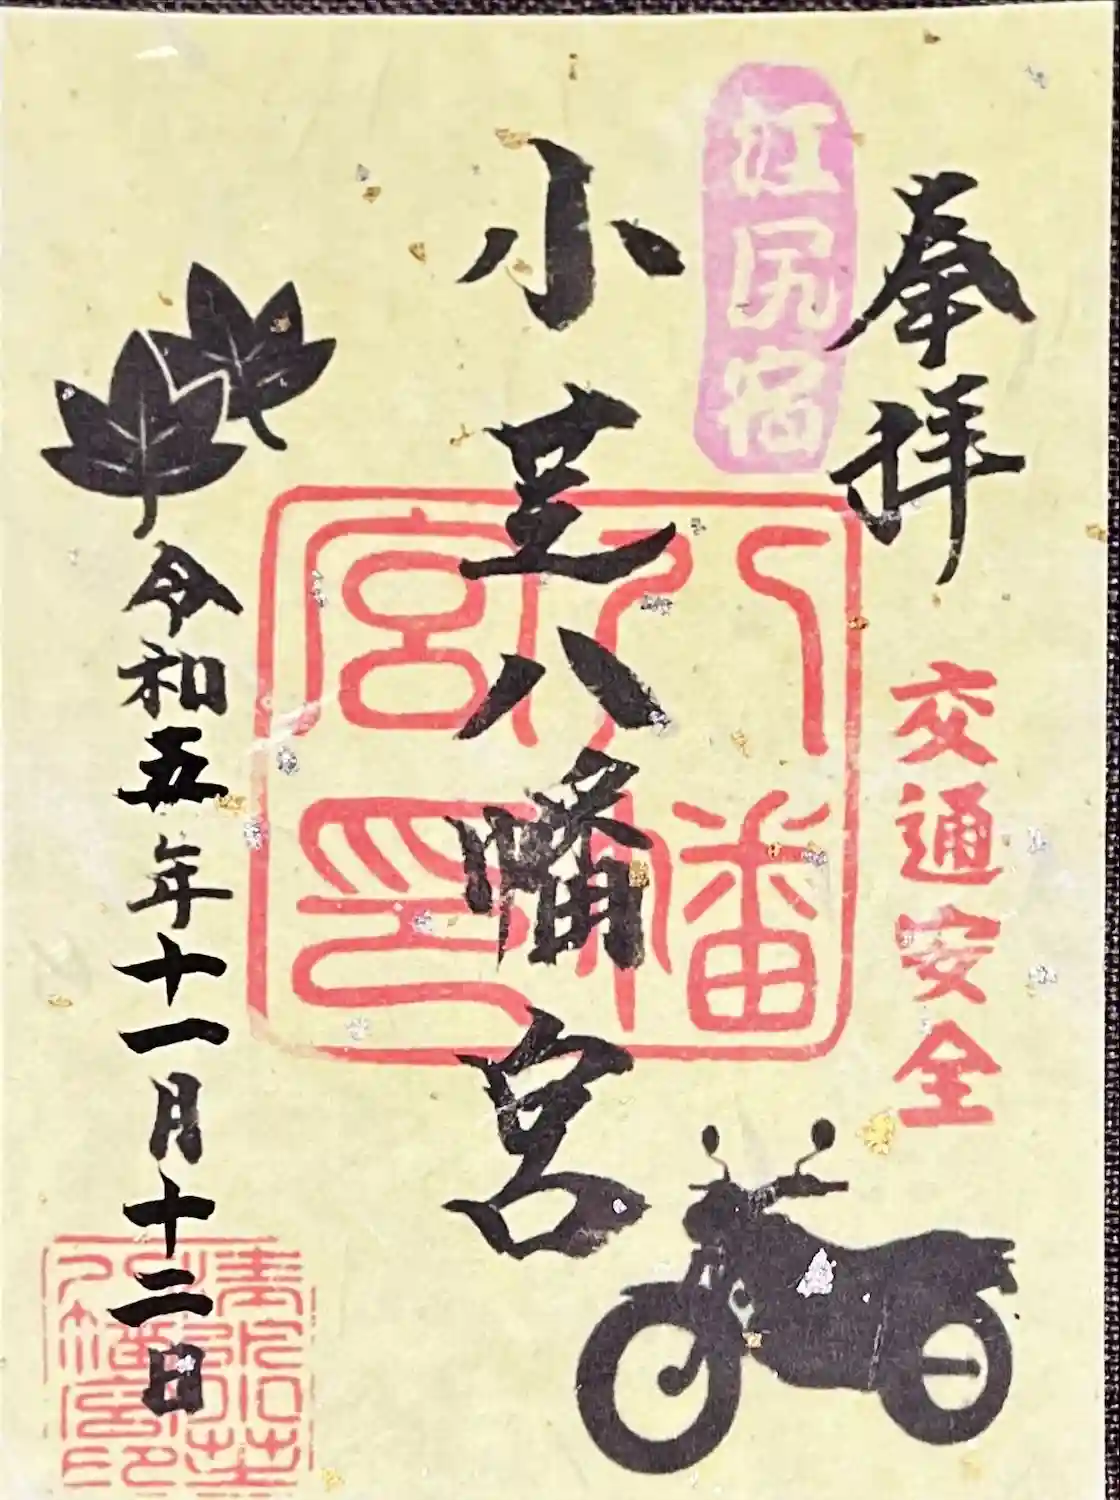 奉拝
江尻宿
交通安全
小芝八幡宮
八幡
宮印
令和五年十一月十二日